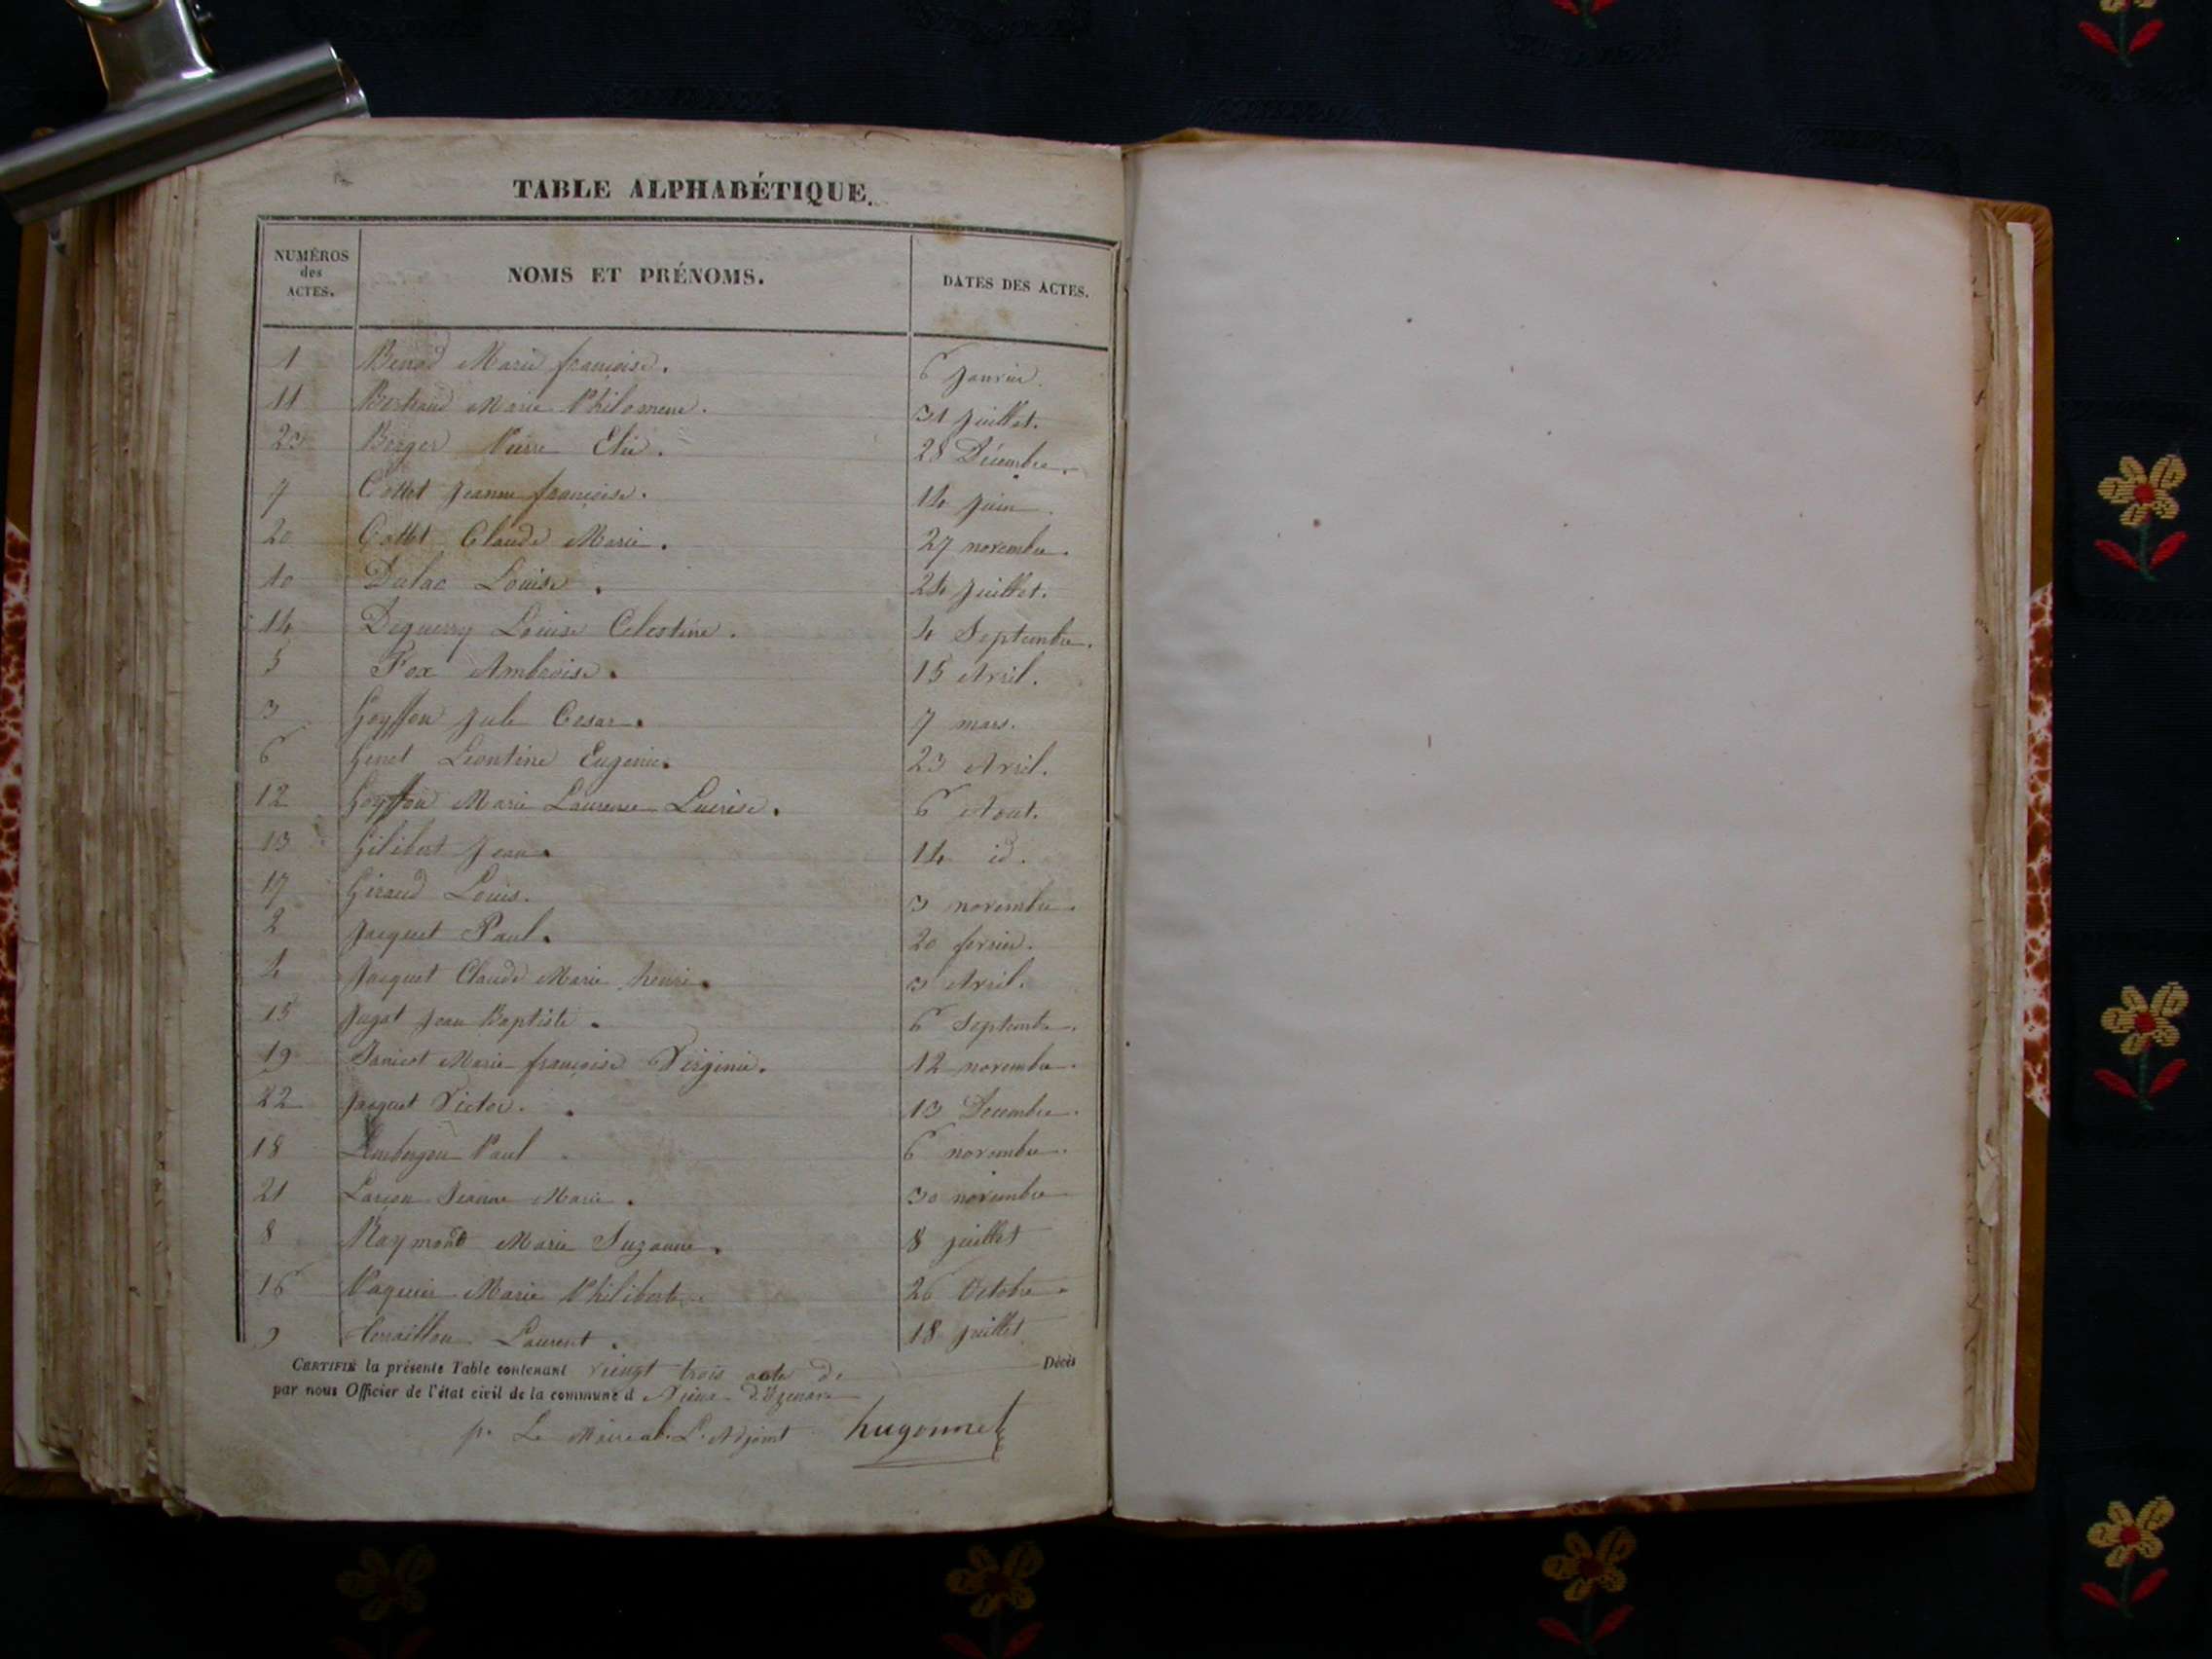 TABLE ALPHABÉTIQUE.
NUMÉROS des ACTES. NOMS ET PRÉNOMS. DATES DES ACTES.
1 Benod Marie françoise. 6 Janvier.
11 Bertrand Marie Philomene. 31 Juillet.
23 Berger Pierre Elie. 28 Décembre.
7 Collet Jeanne françoise. 14 Juin.
20 Collet Claude Marie. 27 novembre.
10 Dulac Louise. 24 Juillet.
14 Deguerry Louise Celestine. 4 Septembre.
5 Fox Ambroise. 15 Avril.
3 Goyffon Jule Cesar. 7 mars.
6 Genet Leontine Eugenie. 23 Avril.
12 Goyffon Marie Laurence 6 Aout.
13 Gilibert Jean. 14 id.
17 Giraud Louis. 3 novembre.
2 Jacquet Paul. 20 fevrier.
4 Jacquet Claude Marie henri. 3 Avril.
15 Jugat Jean Baptiste. 6 Septembre.
19 Janicot Marie françoise Virginie. 12 novembre.
22 Jacquet Victor. 13 Decembre.
18 Paul 6 novembre.
21 Jeanne Marie. 30 novembre
8 Raymond Marie Suzanne. 8 juillet
16 Marie Philiberte. 26 Octobre
9 Laurent. 18 juillet
CERTIFIÉ la présente Table contenant vingt trois acte de Décès
par nous Officier de l'état civil de la commune d
p. Le Maire L'Adjoint hugonnet